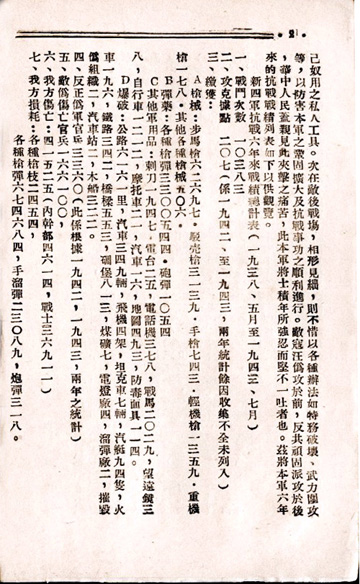 21
己奴用之私人工具。次在敵後戰場，相形見絀，則不惜以各種辦法如特務破壞、武力圍攻
等，以防害本軍之鞏固擴大及抗戰事功之順利進行。敵寇汪僞攻於前，反共頑固派攻於後
，華中人民蓋親見此夾擊之痛苦，此本軍將士積年所強忍而堅不一吐者也。茲將本軍六年
來的抗戰戰績列表如下以供觀覽。
新四軍抗戰六年來戰績總計表（一九三八、五月至一九四三、七月）
一、戰鬥次數
二、攻克據點 二〇七（係一九四二、一九四三，兩年統計餘因收集不全未列入）
三、繳獲：
A 槍械：步馬槍六二六九七，駁壳槍三一三九，手槍七四三，輕機槍一三五九，重機
槍一七八，其他各種槍械五〇六。
B 彈藥：各種槍彈三三〇〇五四四，砲彈一〇五四
C 其他軍用品：刺刀一九四七，電台二五，電話機三七八，戰馬二〇二九，望遠鏡三
八，自行車一二一二，摩托車二一，汽車一六，地圖四九三，防毒面具一一四。
D 爆破：公路六一六一里，汽車三四九輛，飛機四架，坦克車七輛，汽艇九四隻，火
車一九六，鐵路三四二，橋樑五五三，碉堡八一三，煤礦七，電燈廠四，溜彈廠二，摧毀
僞組織二，汽車站二，木船三二二。
四、反正僞軍官兵三三六〇（此係根據一九四二，一九四三，兩年之統計）
五、敵僞傷亡官兵一六六一〇〇，
六、我方傷亡：四一五二五（內幹部四六一四，戰士三六九一一）
七、我方損耗：各種槍枝二四五四，
各種槍彈六七四六八四，手溜彈一三〇八九，炮彈三一八。